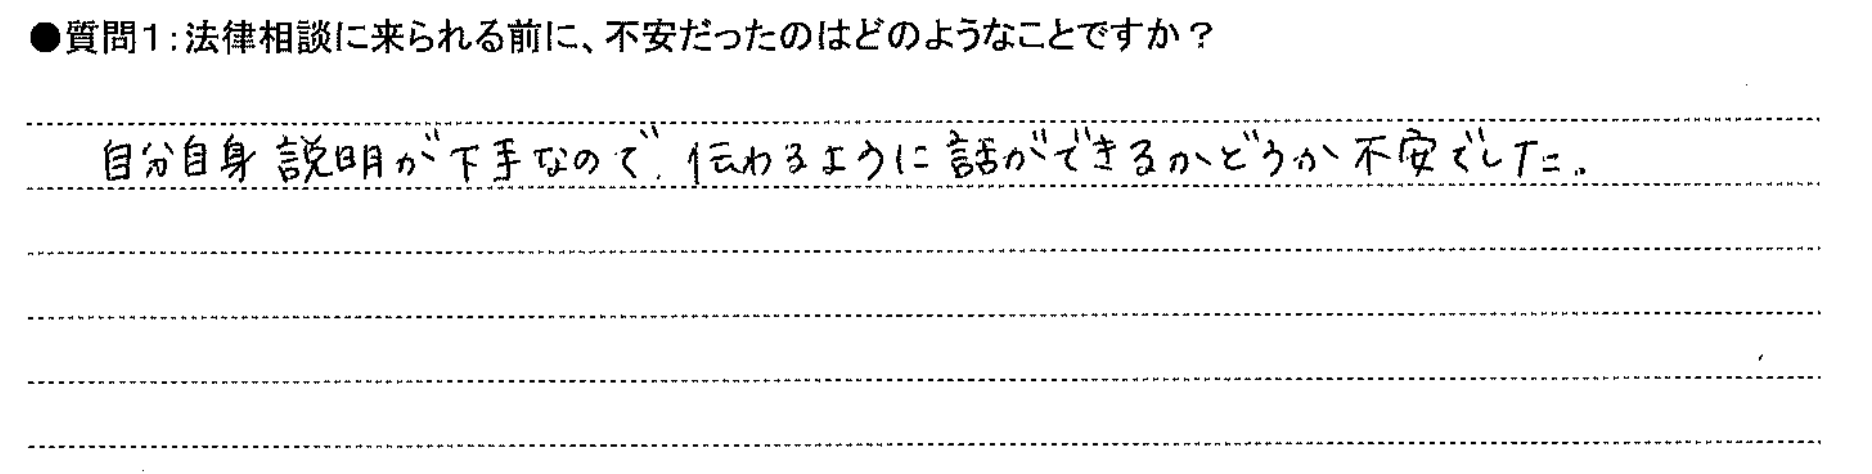 ●質問1:法律相談に来られる前に、不安だったのはどのようなことですか?
自分自身 説明が下手なので、伝わるように話ができるかどうか不安でした。